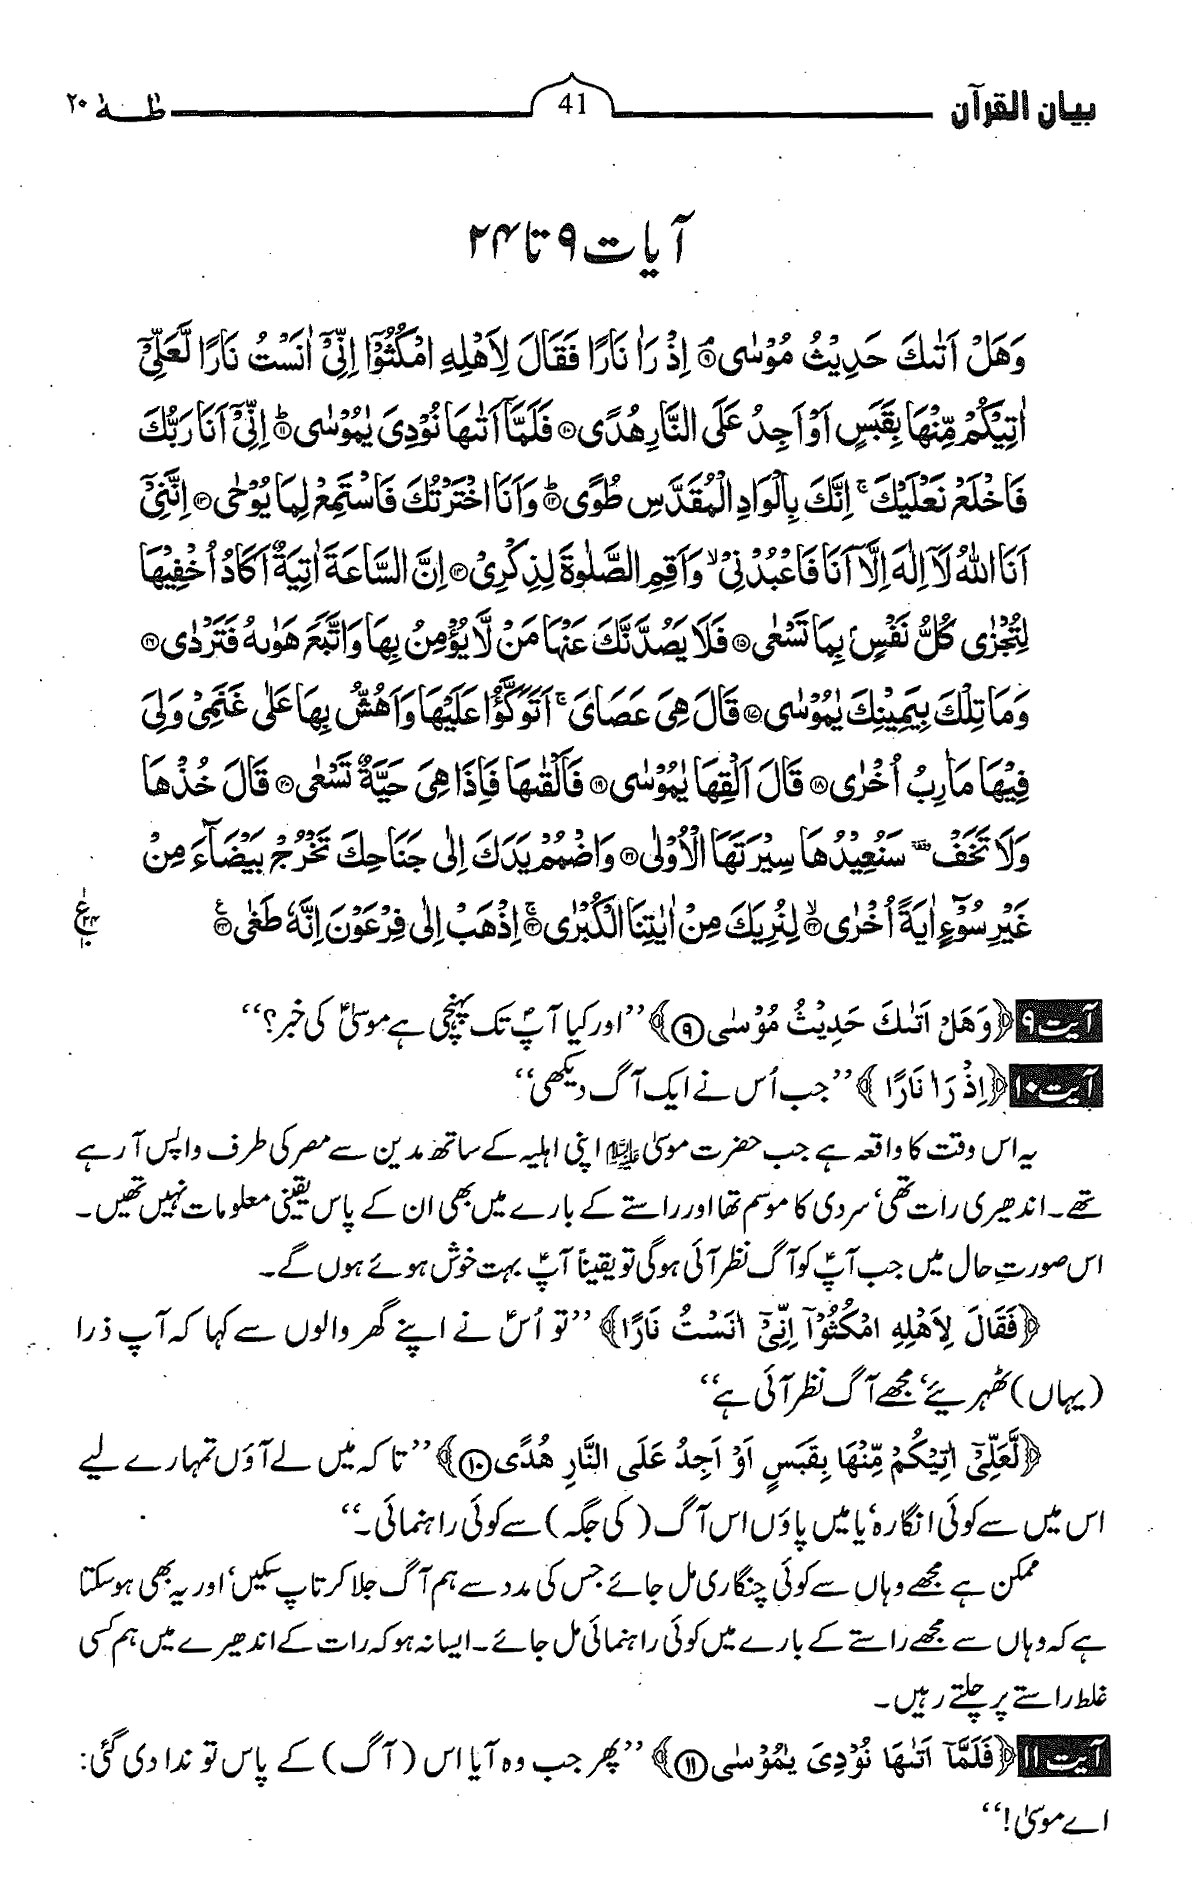 بیان القرآن
41
طٰہٰ ۲۰
آیات ۹ تا ۲۴
وَهَلْ اَتٰىكَ حَدِيْثُ مُوْسٰى ۘ﴿۹﴾ اِذْ رَاٰ نَارًا فَقَالَ لِاَهْلِهِ امْكُثُوْۤا اِنِّيْۤ اٰنَسْتُ نَارًا لَّعَلِّيْۤ
اٰتِيْكُمْ مِّنْهَا بِقَبَسٍ اَوْ اَجِدُ عَلَى النَّارِ هُدًى ﴿۱۰﴾ فَلَمَّاۤ اَتٰىهَا نُوْدِيَ يٰمُوْسٰى ؕ﴿۱۱﴾ اِنِّيْۤ اَنَا رَبُّكَ
فَاخْلَعْ نَعْلَيْكَ ۚ اِنَّكَ بِالْوَادِ الْمُقَدَّسِ طُوًى ؕ﴿۱۲﴾ وَاَنَا اخْتَرْتُكَ فَاسْتَمِعْ لِمَا يُوْحٰى ﴿۱۳﴾ اِنَّنِيْۤ
اَنَا اللّٰهُ لَاۤ اِلٰهَ اِلَّاۤ اَنَا فَاعْبُدْنِيْ ۙ وَاَقِمِ الصَّلٰوةَ لِذِكْرِيْ ﴿۱۴﴾ اِنَّ السَّاعَةَ اٰتِيَةٌ اَكَادُ اُخْفِيْهَا
لِتُجْزٰى كُلُّ نَفْسٍۭ بِمَا تَسْعٰى ﴿۱۵﴾ فَلَا يَصُدَّنَّكَ عَنْهَا مَنْ لَّا يُؤْمِنُ بِهَا وَاتَّبَعَ هَوٰىهُ فَتَرْدٰى ﴿۱۶﴾
وَمَا تِلْكَ بِيَمِيْنِكَ يٰمُوْسٰى ﴿۱۷﴾ قَالَ هِيَ عَصَايَ ۚ اَتَوَكَّؤُا عَلَيْهَا وَاَهُشُّ بِهَا عَلٰى غَنَمِيْ وَلِيَ
فِيْهَا مَاٰرِبُ اُخْرٰى ﴿۱۸﴾ قَالَ اَلْقِهَا يٰمُوْسٰى ﴿۱۹﴾ فَاَلْقٰىهَا فَاِذَا هِيَ حَيَّةٌ تَسْعٰى ﴿۲۰﴾ قَالَ خُذْهَا
وَلَا تَخَفْ ۥ سَنُعِيْدُهَا سِيْرَتَهَا الْاُوْلٰى ﴿۲۱﴾ وَاضْمُمْ يَدَكَ اِلٰى جَنَاحِكَ تَخْرُجْ بَيْضَآءَ مِنْ
غَيْرِ سُوْٓءٍ اٰيَةً اُخْرٰى ۙ﴿۲۲﴾ لِنُرِيَكَ مِنْ اٰيٰتِنَا الْكُبْرٰى ۚ﴿۲۳﴾ اِذْهَبْ اِلٰى فِرْعَوْنَ اِنَّهٗ طَغٰى ﴿۲۴﴾
آیت ۹ ﴿وَهَلْ اَتٰىكَ حَدِيْثُ مُوْسٰى ﴿۹﴾﴾ ’’اور کیا آپؐ تک پہنچی ہے موسیٰؑ کی خبر؟‘‘
آیت ۱۰ ﴿اِذْ رَاٰ نَارًا﴾ ’’جب اُس نے ایک آگ دیکھی‘‘
یہ اس وقت کا واقعہ ہے جب حضرت موسیٰ علیہ السلام اپنی اہلیہ کے ساتھ مدین سے مصر کی طرف واپس آ رہے
تھے۔ اندھیری رات تھی‘ سردی کا موسم تھا اور راستے کے بارے میں بھی ان کے پاس یقینی معلومات نہیں تھیں۔
اس صورتِ حال میں جب آپؑ کو آگ نظر آئی ہو گی تو یقیناً آپؑ بہت خوش ہوئے ہوں گے۔
﴿فَقَالَ لِاَهْلِهِ امْكُثُوْۤا اِنِّيْۤ اٰنَسْتُ نَارًا﴾ ’’تو اُسؑ نے اپنے گھر والوں سے کہا کہ آپ ذرا
(یہاں) ٹھہریئے‘ مجھے آگ نظر آئی ہے‘‘
﴿لَّعَلِّيْۤ اٰتِيْكُمْ مِّنْهَا بِقَبَسٍ اَوْ اَجِدُ عَلَى النَّارِ هُدًى ﴿۱۰﴾﴾ ’’تاکہ میں لے آؤں تمہارے لیے
اس میں سے کوئی انگارہ‘ یا میں پاؤں اس آگ (کی جگہ) سے کوئی راہنمائی۔‘‘
ممکن ہے مجھے وہاں سے کوئی چنگاری مل جائے جس کی مدد سے ہم آگ جلا کر تاپ سکیں‘ اور یہ بھی ہو سکتا
ہے کہ وہاں سے مجھے راستے کے بارے میں کوئی راہنمائی مل جائے۔ ایسا نہ ہو کہ رات کے اندھیرے میں ہم کسی
غلط راستے پر چلتے رہیں۔
آیت ۱۱ ﴿فَلَمَّاۤ اَتٰىهَا نُوْدِيَ يٰمُوْسٰى ﴿۱۱﴾﴾ ’’پھر جب وہ آیا اس (آگ) کے پاس تو ندا دی گئی:
اے موسیٰ!‘‘